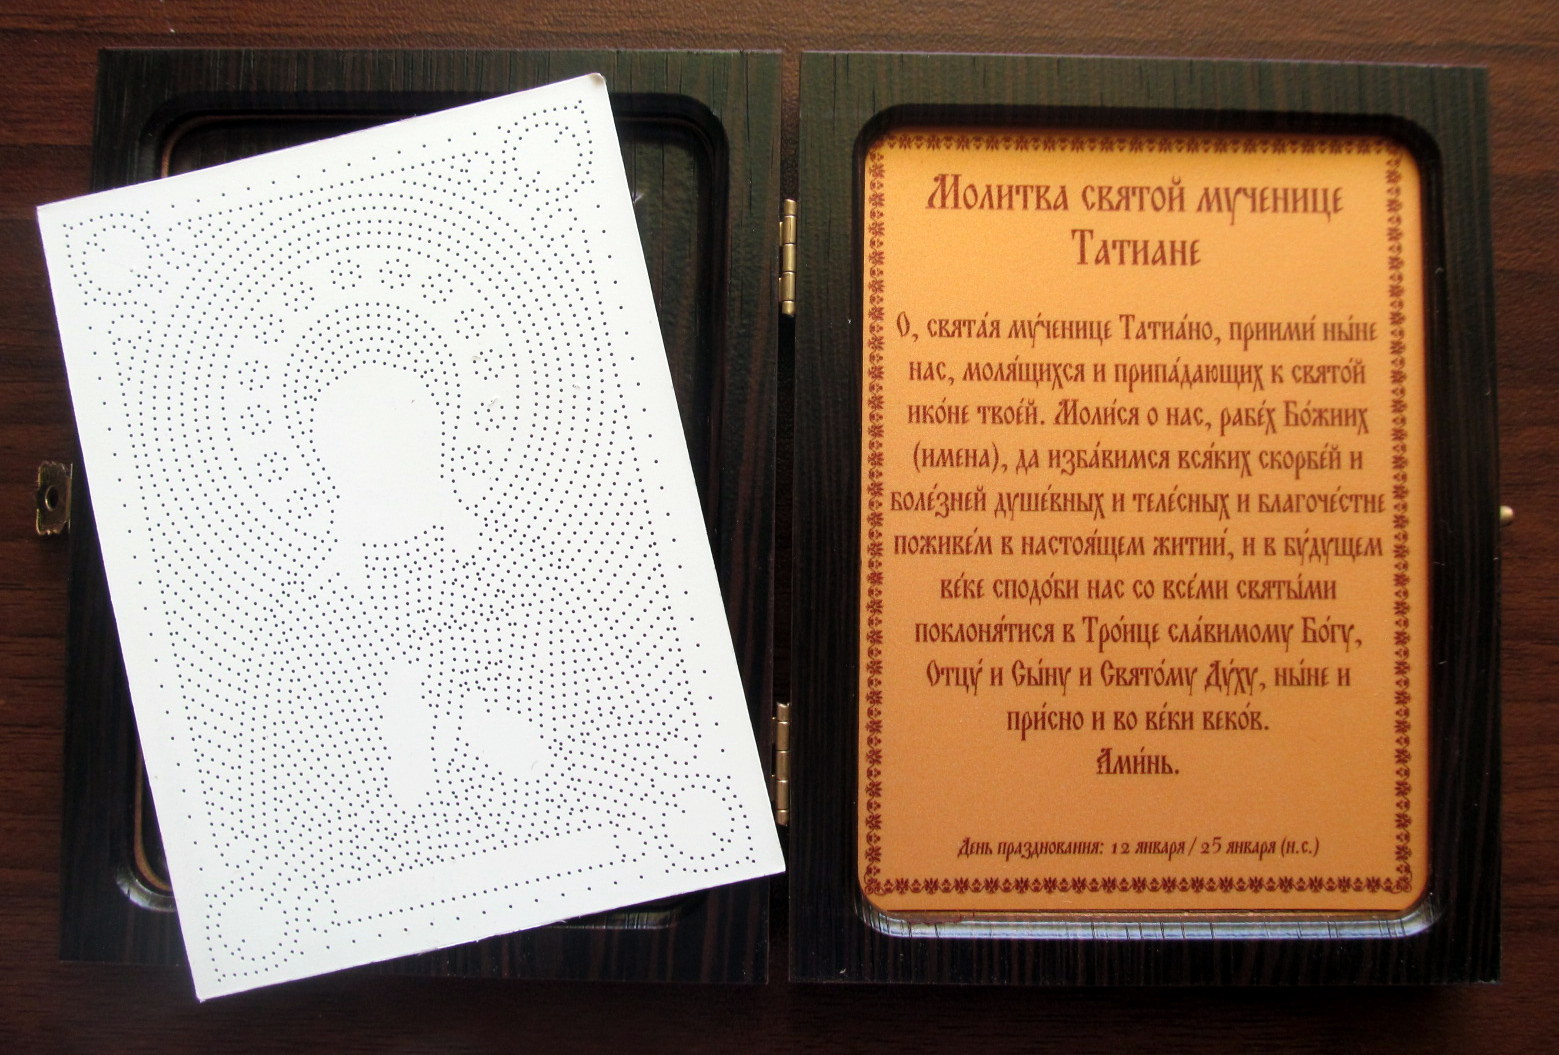 Молитва святой мученице
Татиане
О, свята́я му́ченице Татиа́но, приими́ ны́не
нас, моля́щихся и припа́дающих к свято́й
ико́не твое́й. Моли́ся о нас, рабе́х Бо́жиих
(имена), да изба́вимся вся́ких скорбе́й и
боле́зней душе́вных и теле́сных и благоче́стне
поживе́м в настоя́щем житии́, и в бу́дущем
ве́ке сподо́би нас со все́ми святы́ми
поклоня́тися в Тро́ице сла́вимому Бо́гу,
Отцу́ и Сы́ну и Свято́му Ду́ху, ны́не и
при́сно и во ве́ки веко́в.
Ами́нь.
День празднования: 12 января / 25 января (н.с.)